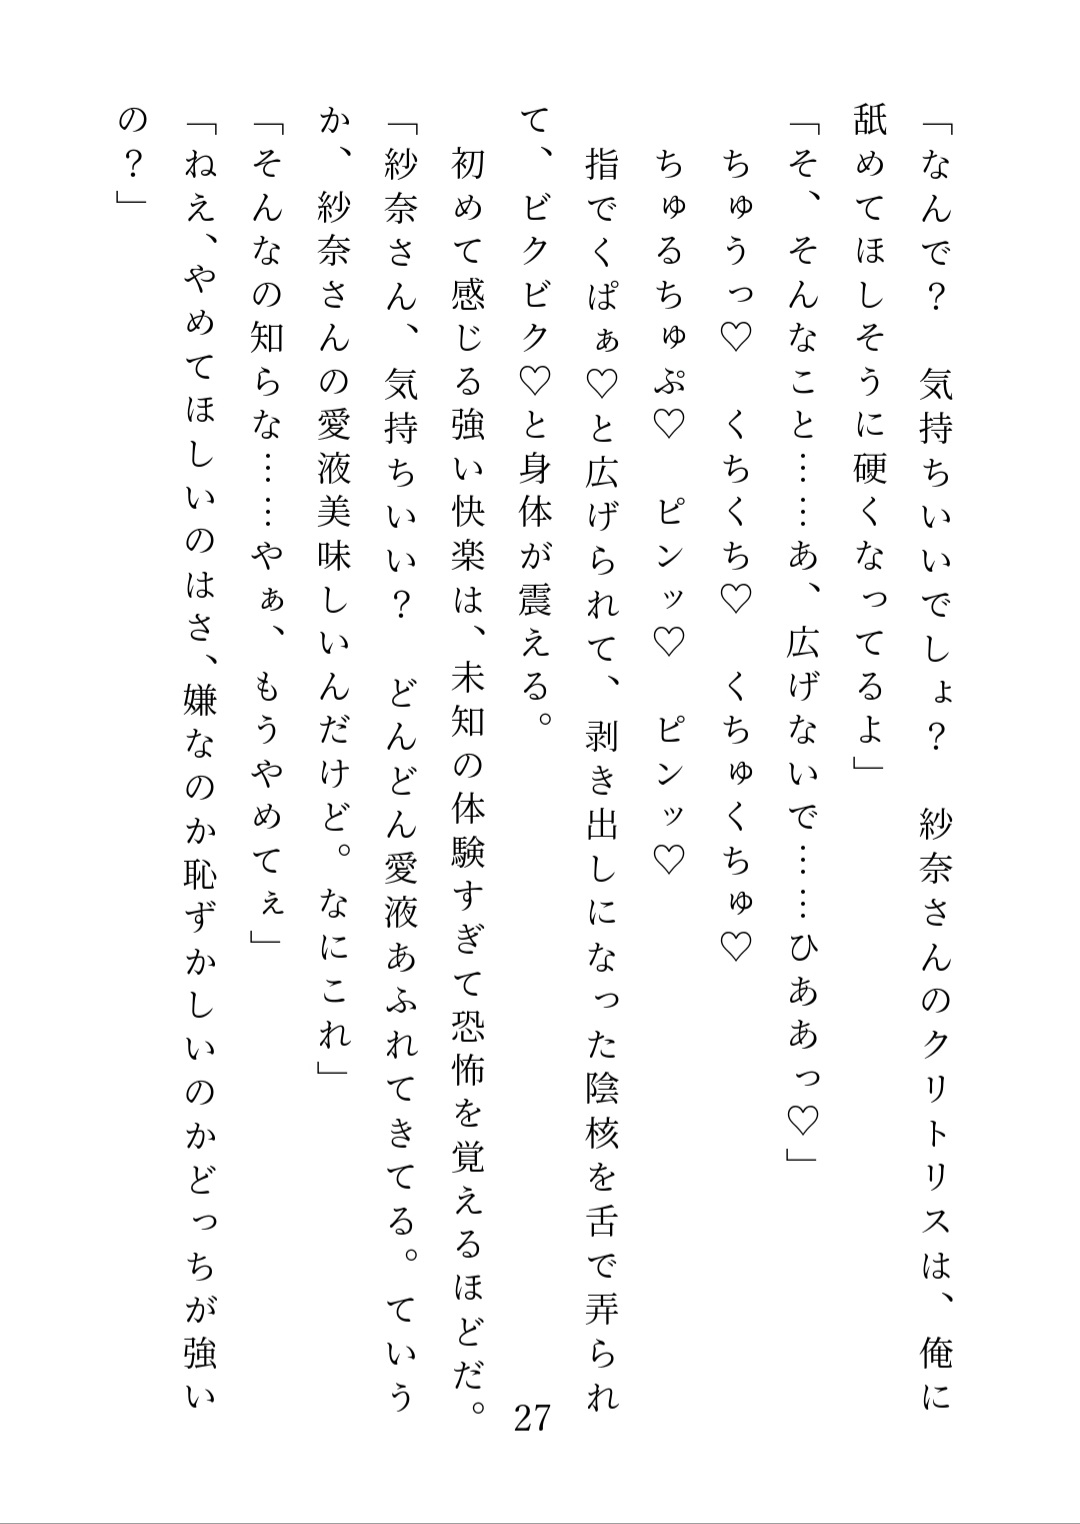 「なんで？　気持ちいいでしょ？　紗奈さんのクリトリスは、俺に
舐めてほしそうに硬くなってるよ」
「そ、そんなこと……あ、広げないで……ひああっ♡」
　ちゅうっ♡　くちくち♡　くちゅくちゅ♡
　ちゅるちゅぷ♡　ピンッ♡　ピンッ♡
　指でくぱぁ♡と広げられて、剥き出しになった陰核を舌で弄られ
て、ビクビク♡と身体が震える。
　初めて感じる強い快楽は、未知の体験すぎて恐怖を覚えるほどだ。
「紗奈さん、気持ちいい？　どんどん愛液あふれてきてる。ていう
か、紗奈さんの愛液美味しいんだけど。なにこれ」
「そんなの知らな……やぁ、もうやめてぇ」
「ねえ、やめてほしいのはさ、嫌なのか恥ずかしいのかどっちが強い
の？」
27